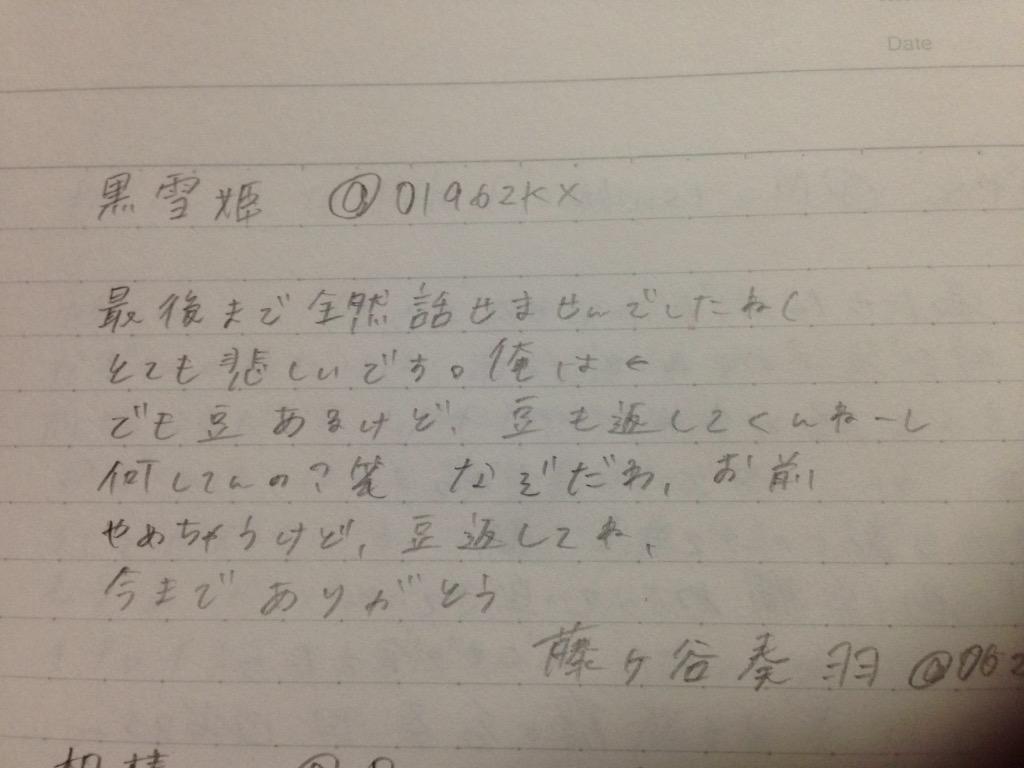 Date
黒雪姫 @01962KX
最後まで全然話せませんでしたね(
とても悲しいです。俺は←
でも豆あるけど、豆も返してくんねーし
何してんの?笑 なぞだわ、お前、
やめちゃうけど、豆返してね、
今までありがとう
藤ヶ谷奏羽 @062